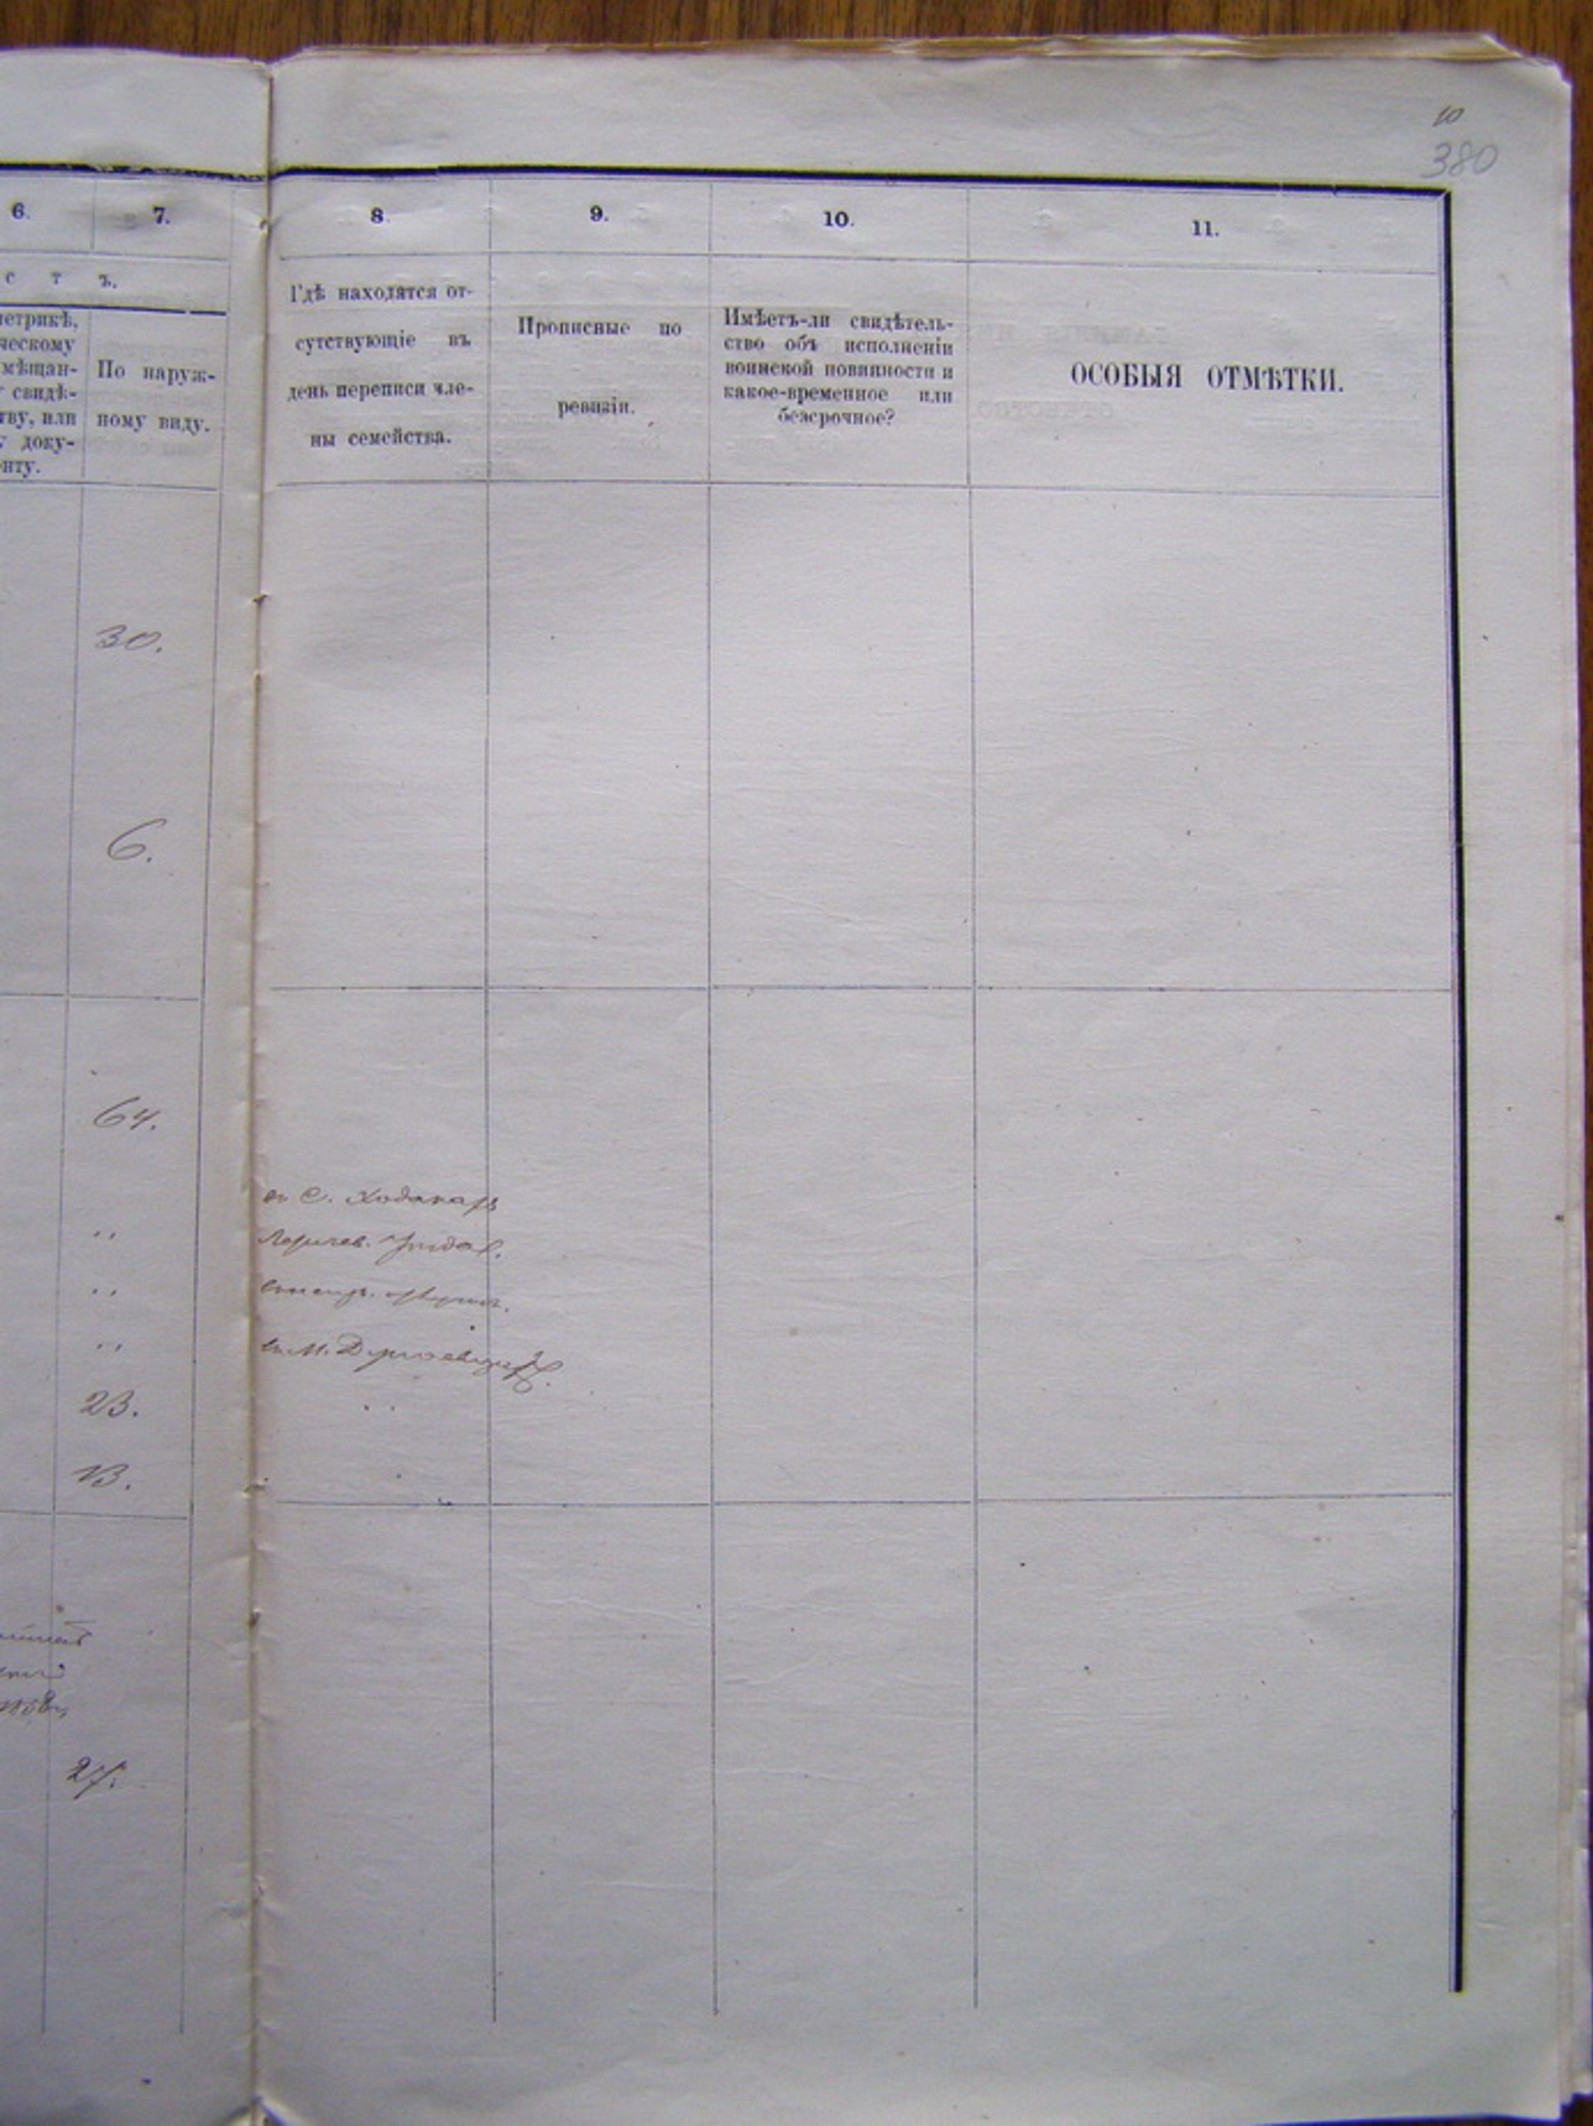 10
380
6.
7.
8.
9.
10.
11.
с т ъ.
етрикѣ,
ческому
мѣщан-
свидѣ-
тву, или
у доку-
нту.
По наруж-
ному виду.
Гдѣ находятся от-
сутствующіе въ
день переписи чле-
ны семейства.
Прописные по
ревизіи.
Имѣетъ-ли свидѣтель-
ство объ исполненіи
воинской повинности и
какое-временное или
безсрочное?
ОСОБЫЯ ОТМѢТКИ.
30.
6.
64.
въ С.
23.
13.
27.